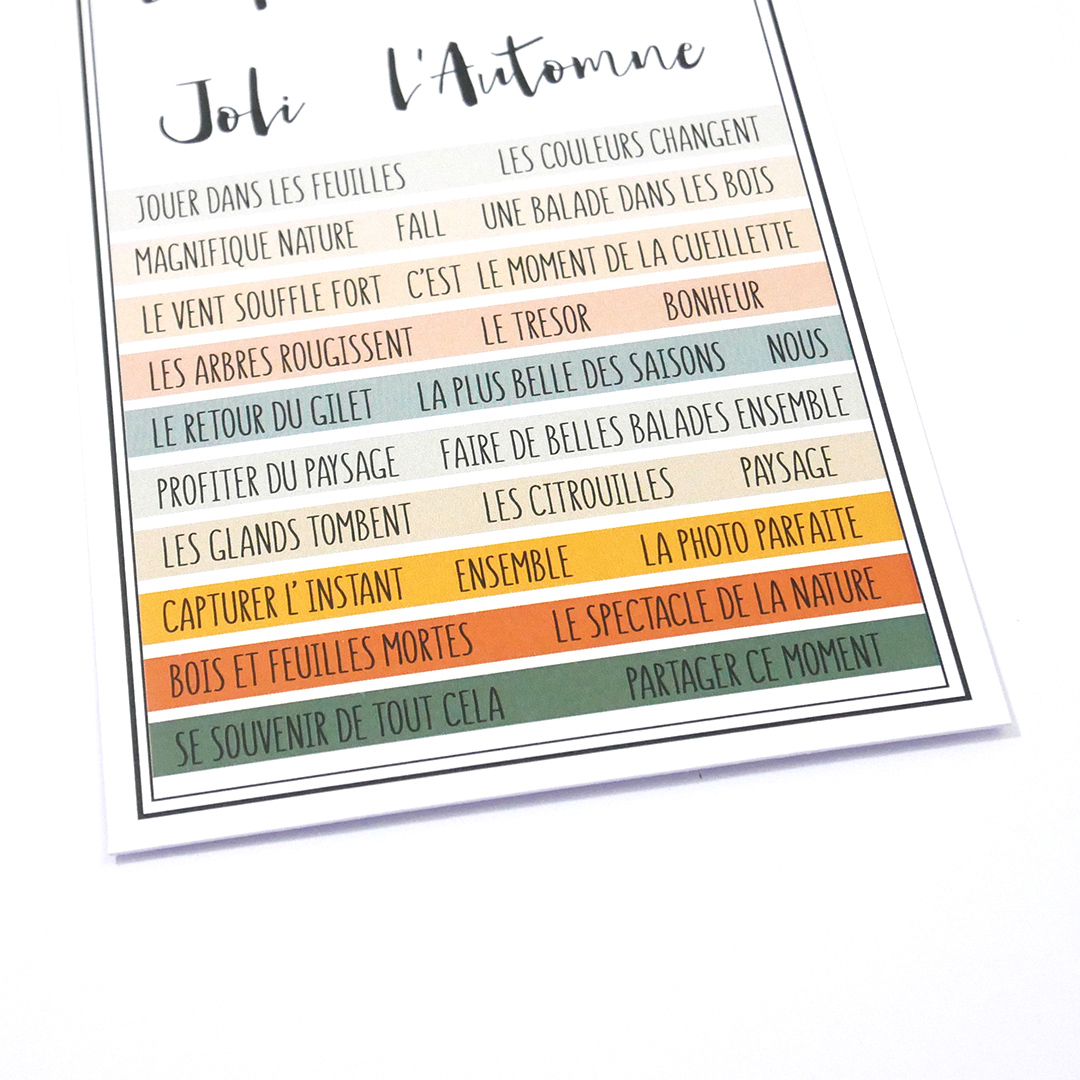 Joli l'Automne
JOUER DANS LES FEUILLES LES COULEURS CHANGENT
MAGNIFIQUE NATURE FALL UNE BALADE DANS LES BOIS
LE VENT SOUFFLE FORT C'EST LE MOMENT DE LA CUEILLETTE
LES ARBRES ROUGISSENT LE TRESOR BONHEUR
LE RETOUR DU GILET LA PLUS BELLE DES SAISONS NOUS
PROFITER DU PAYSAGE FAIRE DE BELLES BALADES ENSEMBLE
LES GLANDS TOMBENT LES CITROUILLES PAYSAGE
CAPTURER L' INSTANT ENSEMBLE LA PHOTO PARFAITE
BOIS ET FEUILLES MORTES LE SPECTACLE DE LA NATURE
SE SOUVENIR DE TOUT CELA PARTAGER CE MOMENT